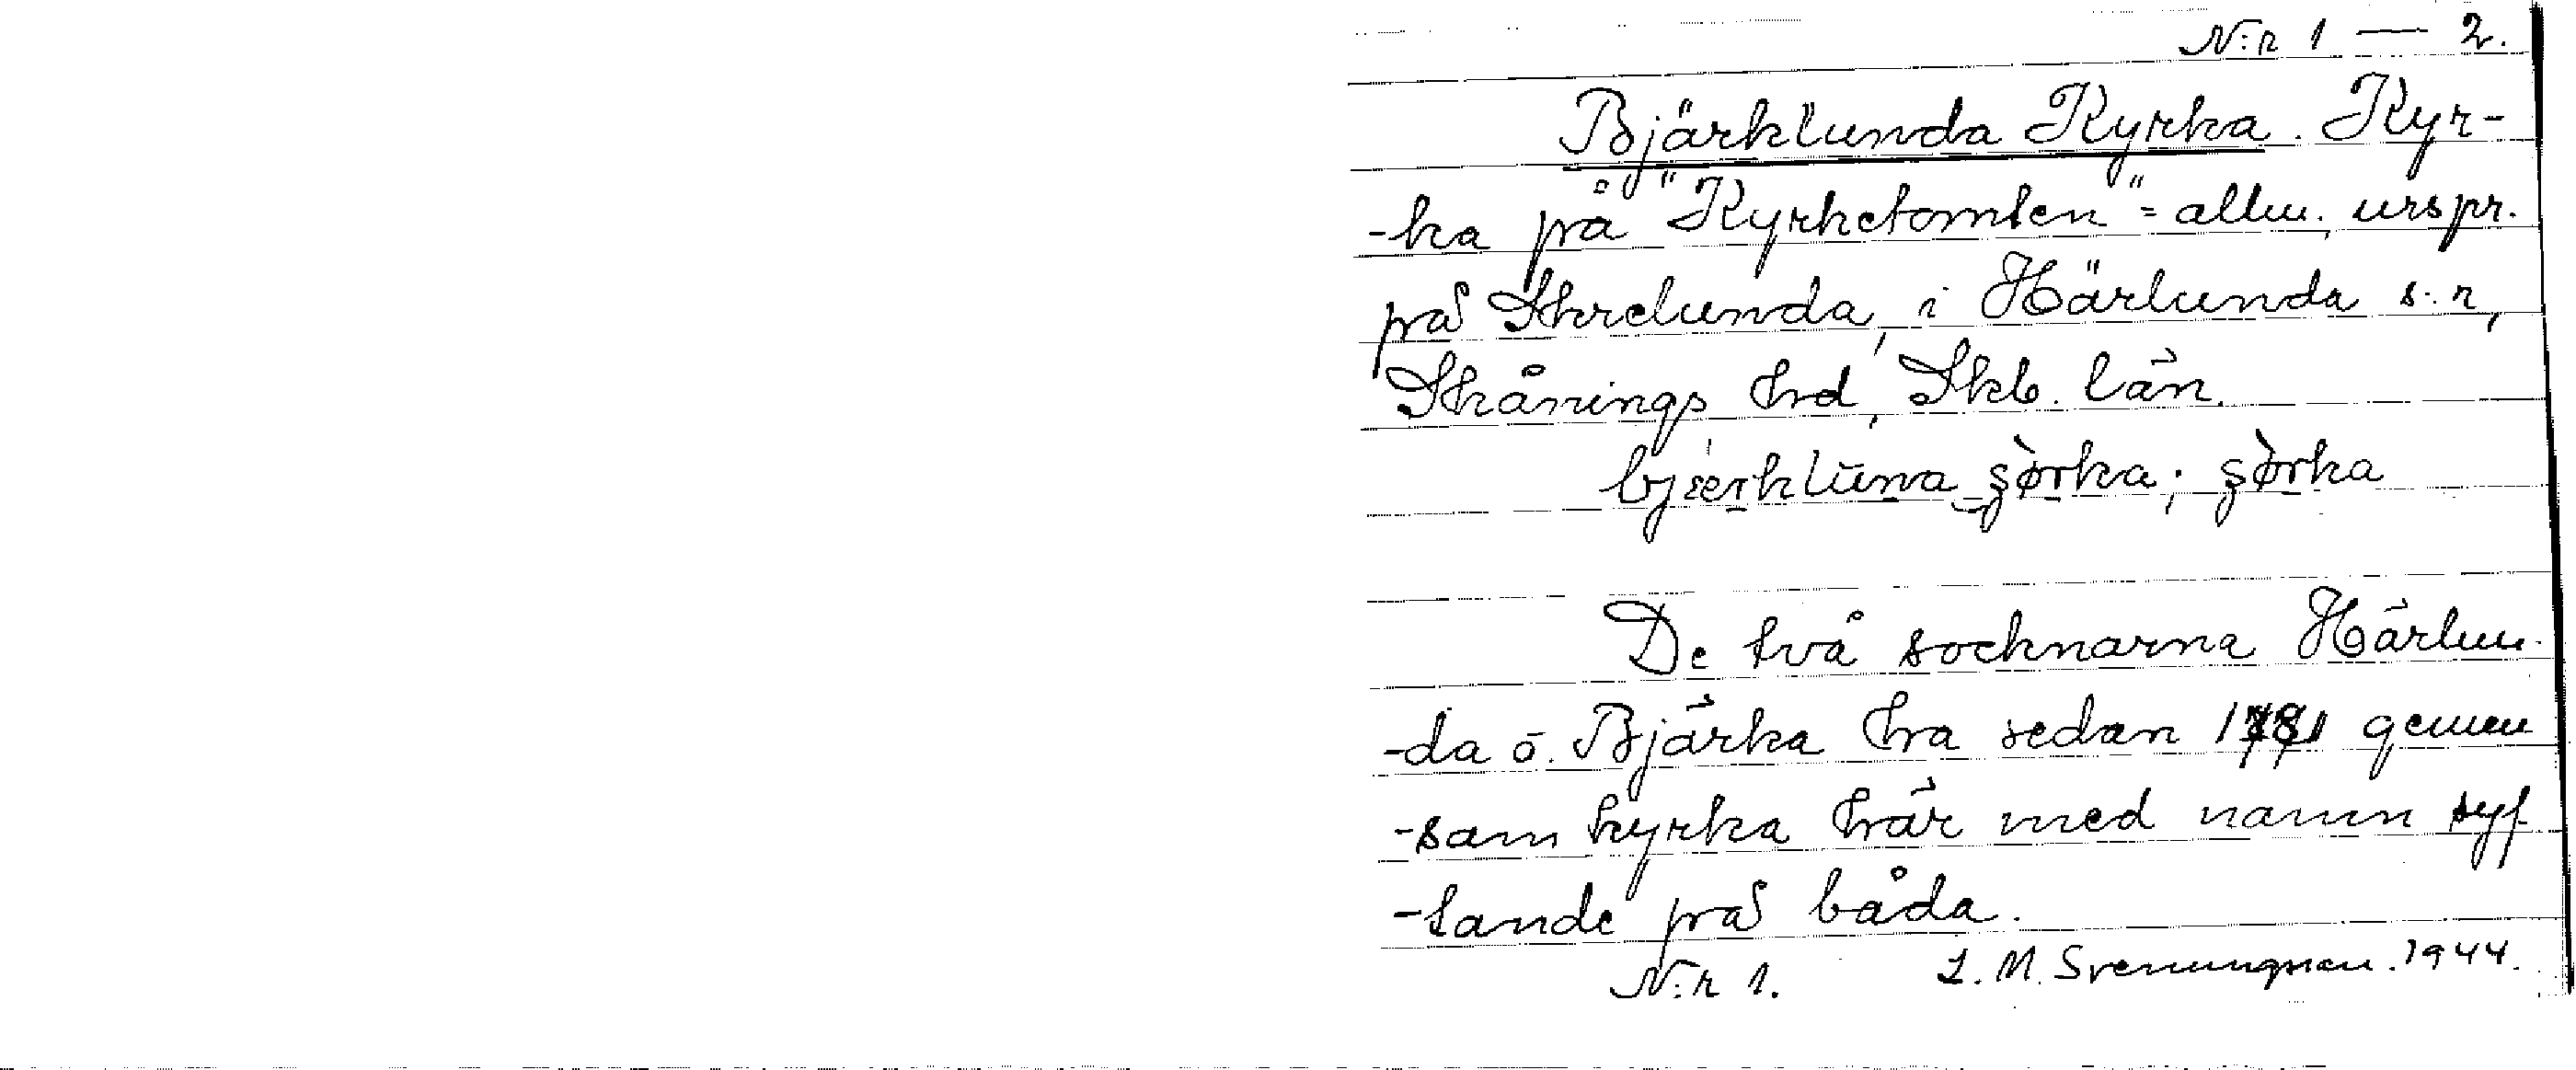 N:r 1 — 2.
Bjärklunda Kyrka. Kyr-
-ka på "Kyrketomten" = allm. urspr.
på Skrelunda, i Härlunda s:n,
Skånings hrd, Skb. län.
bjærkluna şòrka; şòrka
De två socknarna Härlun-
-da o. Bjärka ha sedan gemen
-sam kyrka här med namn syf
-tande på båda.
N:r 1. L. M. Svenungsson. 1944.